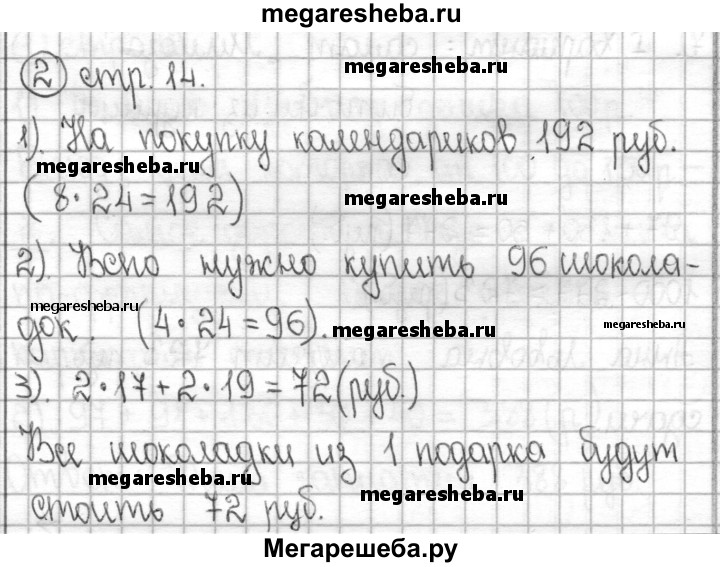 megaresheba.ru
2 стр. 14.
megaresheba.ru
1). На покупку календариков 192 руб.
megaresheba.ru
(8·24=192)
megaresheba.ru
2). Всего нужно купить 96 шокола-
megaresheba.ru
док. (4·24=96).
megaresheba.ru
megaresheba.ru
3). 2·17+2·19=72(руб.)
Все шоколадки из 1 подарка будут
megaresheba.ru
megaresheba.ru
стоить 72 руб.
Мегарешеба.ру